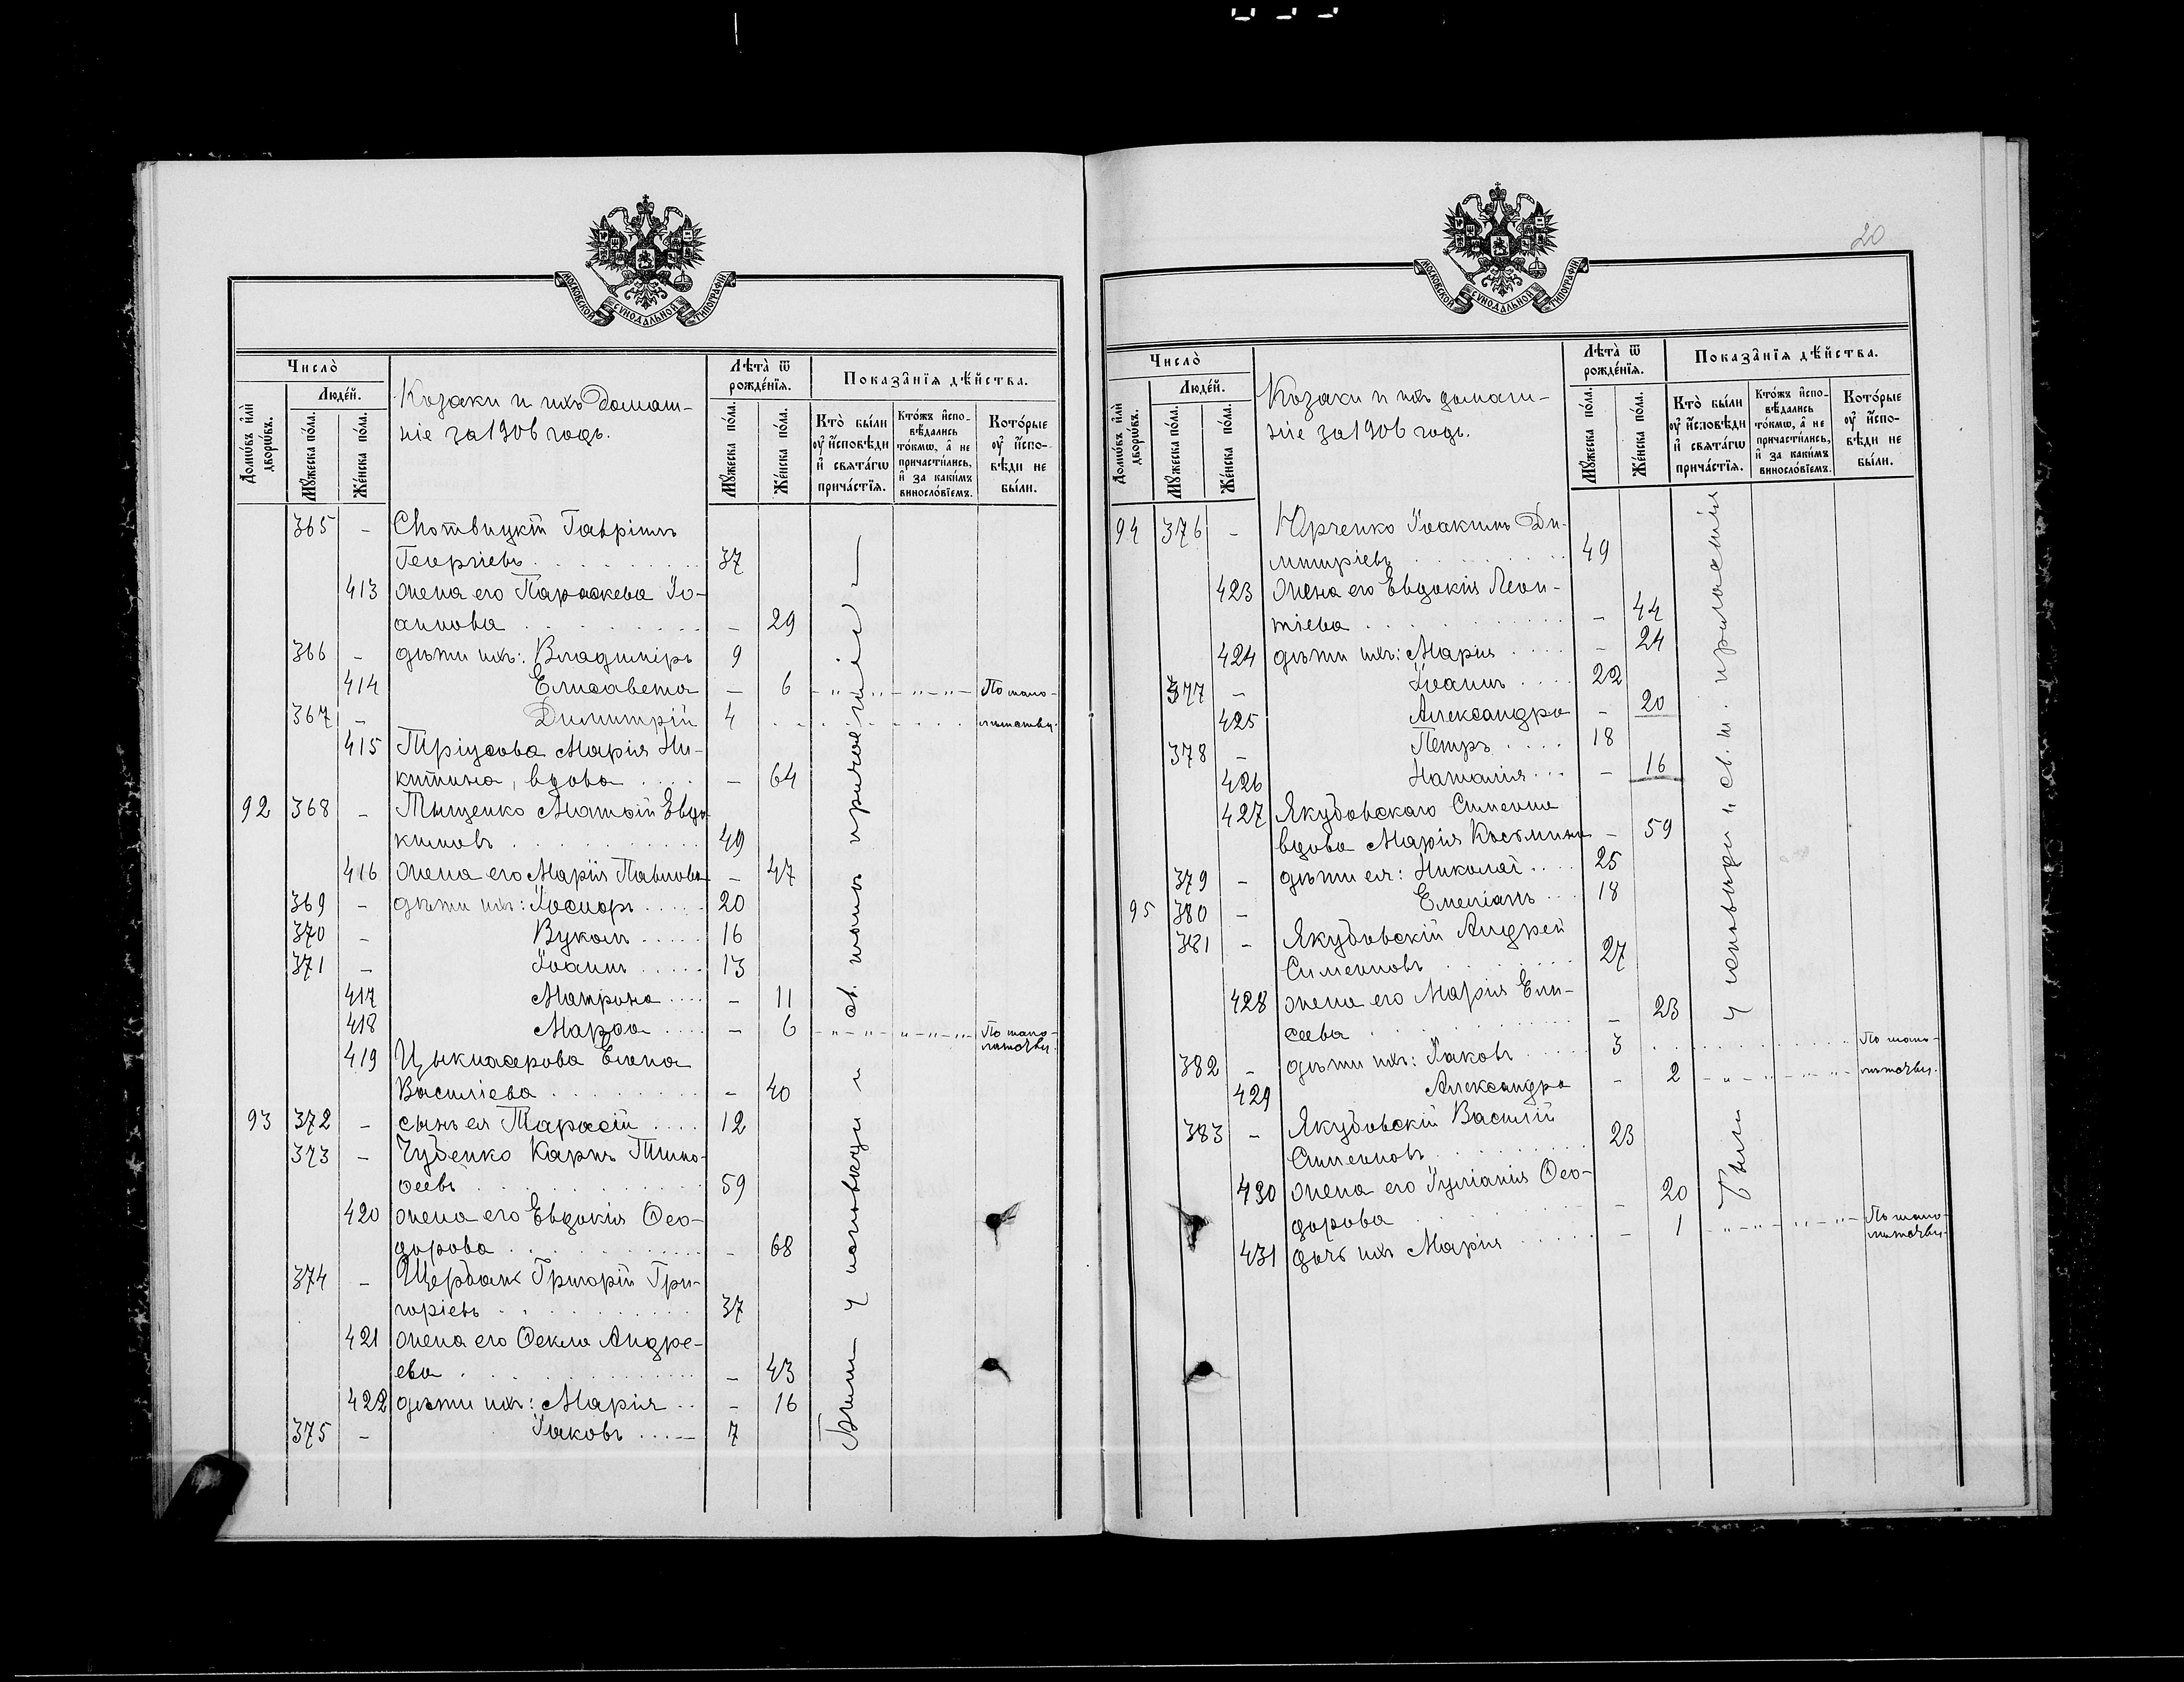 МОСКОВСКОЙ СѴНОДАЛЬНОЙ ТИПОГРАФІИ
Число̀
Домѡ́въ и҆лѝ дворѡ́въ.
Люде́й.
Мꙋ́жеска по́ла.
Же́нска по́ла.
Козаки и ихъ домаш-
ніе за 1906 годъ.
Лѣ́та ѿ рожде́нїѧ.
Мꙋ́жеска по́ла.
Же́нска по́ла.
Показа̑нїѧ дѣ́йства.
Кто̀ бы́ли оу҆ и҆сповѣди и҆ свѧта́гѡ прича́стїѧ.
Кто́жъ и҆спо-вѣдались то́кмѡ, а҆ не причасти́лись, и҆ за каки́мъ виносло́вїемъ.
Кото́рые оу҆ и҆спо-вѣди не бы́ли.
365 - Скотвицкій Гавріилъ
Георгіевъ 37
413 жена его Параскева Іо-
аннова - 29
366 - дѣти ихъ: Владиміръ 9
414 Елисавета - 6 По мало-
367 - Димитрій 4 лѣтству.
415 Тріусова Марія Ни-
китина, вдова - 64
92 368 - Тищенко Матѳій Евдо-
кимовъ 49
416 жена его Марія Павлова - 47
369 - дѣти ихъ: Іосифъ 20
370 - Вуколъ 16
371 - Іоаннъ 13
417 Матрона - 11
418 Марѳа - 6 По мало-
лѣтству.
419 Елена
Василіева - 40
93 372 - сынъ ея Тарасій 12
373 - Чубенко Карпъ Тимо-
ѳеевъ 59
420 жена его Евдокія Ѳео-
дорова - 68
374 - Щербакъ Григорій Гри-
горіевъ 37
421 жена его Ѳекла Андре-
ева - 43
422 дѣти ихъ: Марія - 16
375 - Іаковъ 7
Были у исповѣди и св. таинъ причастія
20
МОСКОВСКОЙ СѴНОДАЛЬНОЙ ТИПОГРАФІИ
Число̀
Домѡ́въ и҆лѝ дворѡ́въ.
Люде́й.
Мꙋ́жеска по́ла.
Же́нска по́ла.
Козаки и ихъ домаш-
ніе за 1906 годъ.
Лѣ́та ѿ рожде́нїѧ.
Мꙋ́жеска по́ла.
Же́нска по́ла.
Показа̑нїѧ дѣ́йства.
Кто̀ бы́ли оу҆ и҆сповѣди и҆ свѧта́гѡ прича́стїѧ.
Кто́жъ и҆спо-вѣдались то́кмѡ, а҆ не причасти́лись, и҆ за каки́мъ виносло́вїемъ.
Кото́рые оу҆ и҆спо-вѣди не бы́ли.
94 376 - Юрченко Іоакимъ Ди-
митріевъ 49
423 жена его Евдокія Леон-
тіева - 44
424 дѣти ихъ: Марія - 24
377 - Іоаннъ 22
425 Александра - 20
378 - Петръ 18
426 Наталія - 16
427 Якубовскаго Симеона
вдова Марія Косьмина - 59
379 - дѣти ея: Николай 25
95 380 - Емеліанъ 18
381 - Якубовскій Андрей
Симеоновъ 27
428 жена его Марія Ели-
сеева - 23
382 - дѣти ихъ: Іаковъ 3 По мало-
429 Александра - 2 лѣтству.
383 - Якубовскій Василій
Симеоновъ 23
430 жена его Іуліанія Ѳео-
дорова - 20
431 дочь ихъ Марія - 1 По мало-
лѣтству.
Были у исповѣди и св. т. причастія